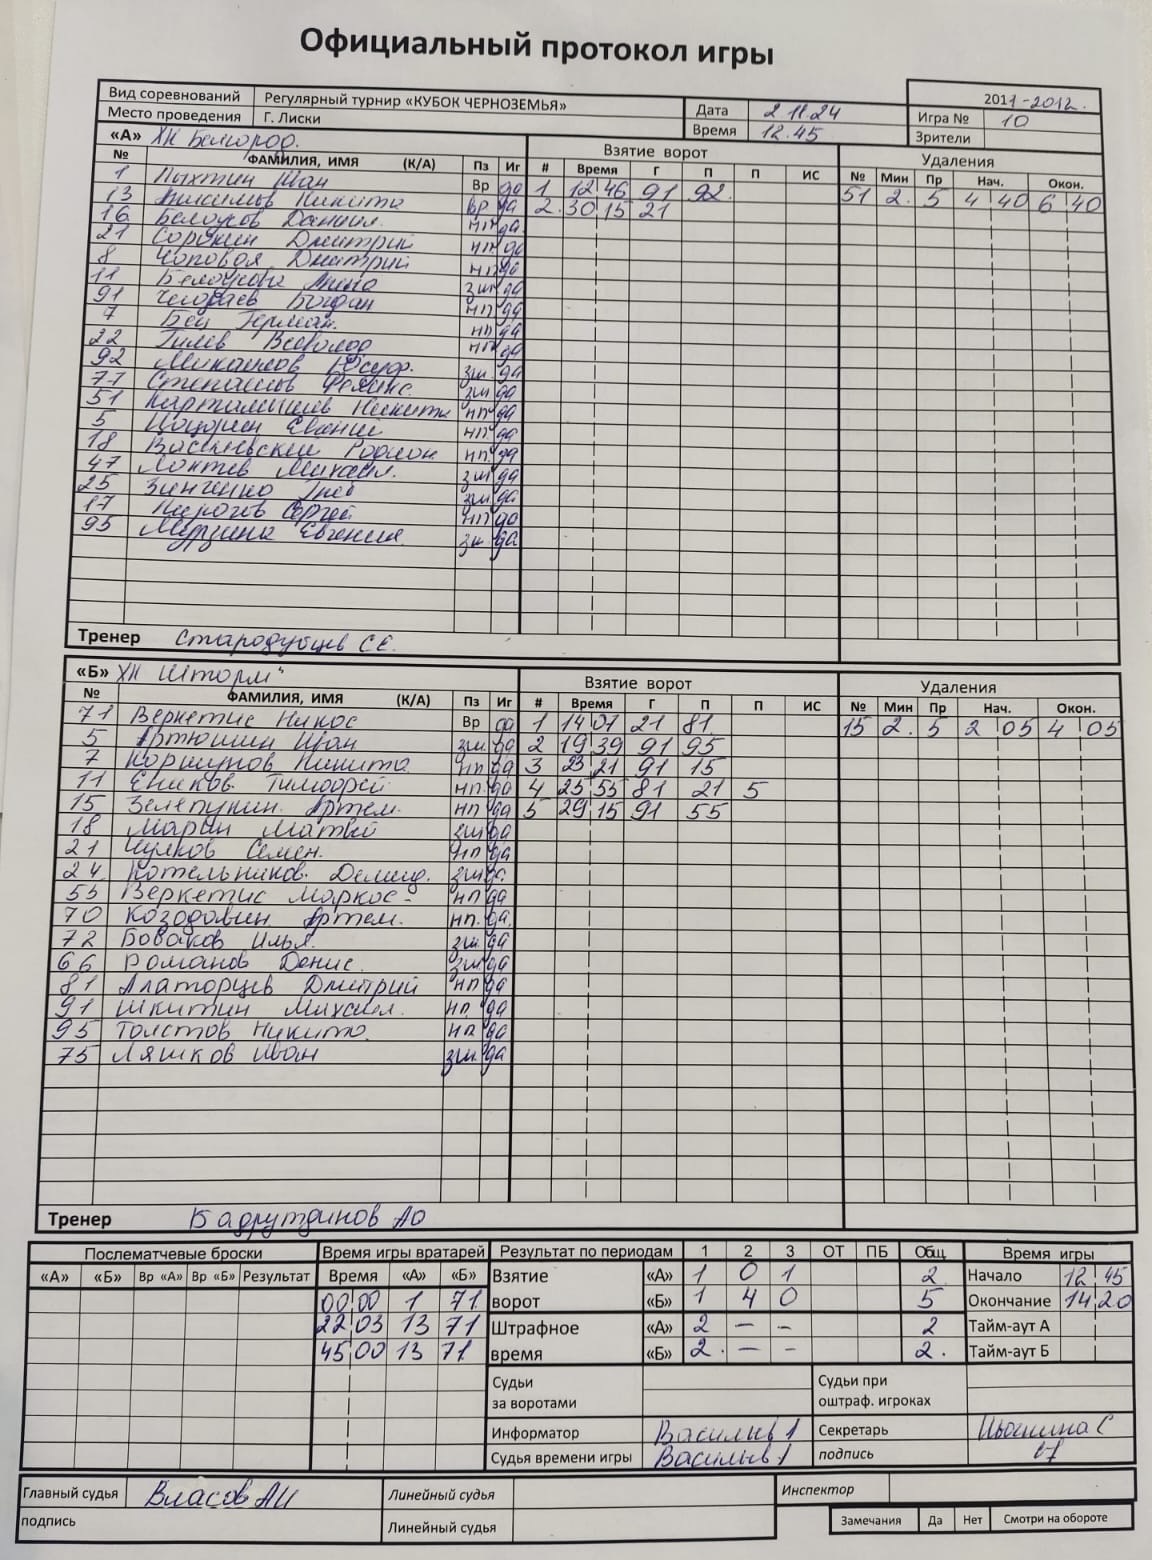 Официальный протокол игры
Вид соревнований Регулярный турнир «КУБОК ЧЕРНОЗЕМЬЯ» Дата 2.11.24 2011-2012.
Место проведения Г. Лиски Время 12.45 Игра № 10
Зрители
«А» ХК Белгород. Взятие ворот Удаления
№ ФАМИЛИЯ, ИМЯ (К/А) Пз Иг # Время Г П П ИС № Мин Пр Нач. Окон.
1 Иван Вр да 1 12 46 91 92 51 2. 5 4 40 6 40
13 Никита Вр да 2. 30 15 21
16 Белоусов Даниил. нп да
21 Сорокин Дмитрий нп да
8 Дмитрий нп да
11 Белоусова зщ да
91 Богдан нп да
7 Герман. нп да
22 Гилёв Всеволод нп да
92 зщ. да
77 Степанов Феликс. зщ да
51 Картамышев Никита нп да
5 Евгений нп. да
18 Василевский Родион нп. да
47 Лоптев Михаил. зщ да
25 Зинченко Глеб зщ да
17 Пирогов Сергей нп да
95 Мурзина Евгения. зщ да
Тренер Стародубцев С.Е.
«Б» ХК Шторм" Взятие ворот Удаления
№ ФАМИЛИЯ, ИМЯ (К/А) Пз Иг # Время Г П П ИС № Мин Пр Нач. Окон.
71 Веркетис Никос Вр да 1 14 01 21 81. 15 2. 5 2 05 4 05
5 Артюшин Иван зщ. да 2 19 39 91 95
7 Коршунов Никита нп да 3 23 21 91 15
11 Еников Тимофей нп. да 4 25 55 81 21 5
15 Зелепукин. Артем. нп да 5 29 15 91 55
18 Марин Матвей зщ да
21 Чулков Семен. нп да
24 Котельников Демид. зщ да
55 Веркетис Маркос- нп да
70 Козодавин Артем. нп. да.
72 Бобаков Илья. зщ. да
66 Романов Денис. зщ да
81 Алаторцев Дмитрий нп да
91 Шкитин Михаил. нп. да
95 Толстов Никита. нп да
75 Ляшков Иван зщ. да
Тренер Бадрутдинов АО
Послематчевые броски Время игры вратарей Результат по периодам 1 2 3 ОТ ПБ Общ. Время игры
«А» «Б» Вр «А» Вр «Б» Результат Время «А» «Б» Взятие «А» 1 0 1 2 Начало 12 45
00 00 1 71 ворот «Б» 1 4 0 5 Окончание 14 20
22 03 13 71 Штрафное «А» 2 – – 2 Тайм-аут А
45 00 13 71 время «Б» 2. – – 2. Тайм-аут Б
Судьи за воротами Судьи при оштраф. игроках
Информатор Секретарь
Судья времени игры подпись
Главный судья Власов АИ Линейный судья Инспектор
подпись Линейный судья Замечания Да Нет Смотри на обороте